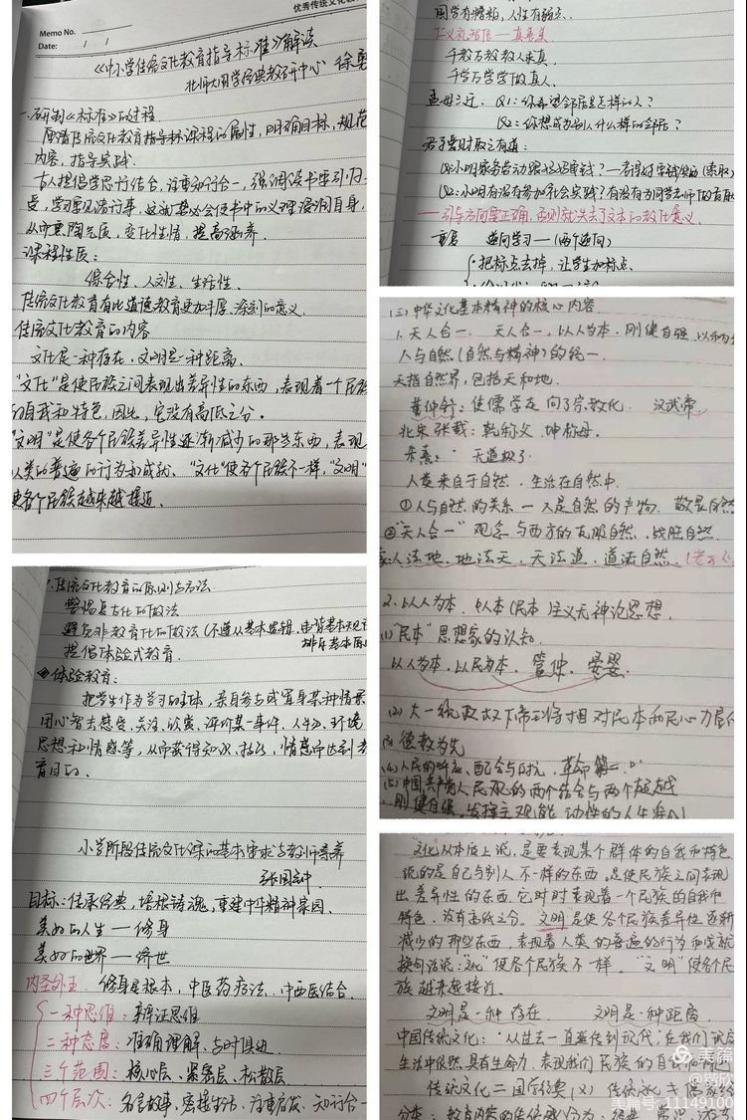 优秀传统文化教
Memo No.
Date: / /
《中小学传统文化教育指导标准》解读
北师大国学经典教研中心 徐勇
一、研制《标准》的过程
厘清传统文化教育指导标 课程的属性，明确目标，规范
内容，指导实践
古人提倡学思行结合，注重知行合一，强调读书要引归
受，学习要见诸行事，
从中熏陶气质，变化性情，提高涵养.
课程性质：
综合性、人文性、生活性.
传统文化教育有比道德教育更加丰厚、深刻的意义.
传统文化教育的内容
文化是一种存在，文明是一种距离.
"文化"是使民族之间表现出差异性的东西，表现着一个民族
的自我和特色，因此，它没有高低之分.
"文明"是使各个民族差异性逐渐减少的那些东西，表现
人类的普遍的行为和成就. "文化"使各个民族不一样，"文明"
使各个民族越来越接近.
传统文化教育的原则与方法
警惕复古化的做法
避免非教育化的做法（不遵从基本逻辑，
提倡体验式教育.
体验教育：
把学生作为学习的主体，亲自参与或置身某种情景
用心智去感受、关注、欣赏、评价某一事件、人物、环境
思想和情感等，从而获得知识、技能、情意而达到教
育目的.
小学阶段传统文化课的基本要求与教师素养
张国
目标：传承经典，培根铸魂，重建中华精神家园.
美好的人生 — 修身
美好的世界 — 济世
内圣外王 修身是根本，中医药疗法 中西医结合.
一种思维：辩证思维
二种态度：准确理解、与时俱进
三个范围：核心层、紧密层、松散层
四个层次：名言故事，密接生活，注重启发，知行合一
国学有精粗，人性有弱点.
千教万教教人求真，
千学万学学做真人.
孟母三迁. Q1：你希望邻居是怎样的人？
Q2：你想成为别人什么样的邻居？
君子爱财取之有道：
Q1：小明家务劳动跟妈妈要钱？
Q2：小明有没有参加社会实践？有没有为同学老师做贡献
— 引导方向要正确，否则就失去了文本的教化意义.
逆向学习 — (两个逆向)
把标点去掉，让学生加标点.
(三) 中华文化基本精神的核心内容
1. 天人合一. 天人合一，以人为本，刚健自强，以和为
人与自然（自然与精神）的统一.
天指自然界，包括天和地.
董仲舒：使儒学走向了宗教化. 汉武帝
北宋张载：乾称父，坤称母.
朱熹：
人是来自于自然，生活在自然中.
①人与自然的关系 — 人是自然的产物. 敬畏自然
②"天人合一"观念与西方的克服自然、战胜自然.
人法地，地法天，天法道，道法自然.
2. 以人为本. 人本（民本）主义无神论思想.
(1)"民本"思想家的认知.
以人为本，以民为本. 管仲、晏婴.
(2) 大一统政权下帝王将相对民本和民心力量的
(3) 德教为先
(4) 人民的响应、配合与 革命第一
(5) 中国共产党人民观的两个结合与两个超越
刚健自强. 发挥主观能动性的人生
"文化"从本质上说，是要表现某个群体的自我和特色
说的是自己与别人不一样的东西. 是使民族之间表现
出差异性的东西，它时时表现着一个民族的自我和
特色，没有高低之分. 文明是使各个民族差异性逐渐
减少的那些东西，表现着人类的普遍的行为和成就
换句话说："文化"使各个民族不一样. "文明"使各个民
族越来越接近.
文明是一种存在. 文明是一种距离.
中国传统文化："从过去一直延传到现代，在我们
生活中依然具有生命力，表现我们民族的自我和特
传统文化=国学经典(×)
美篇
美篇号: 11149100